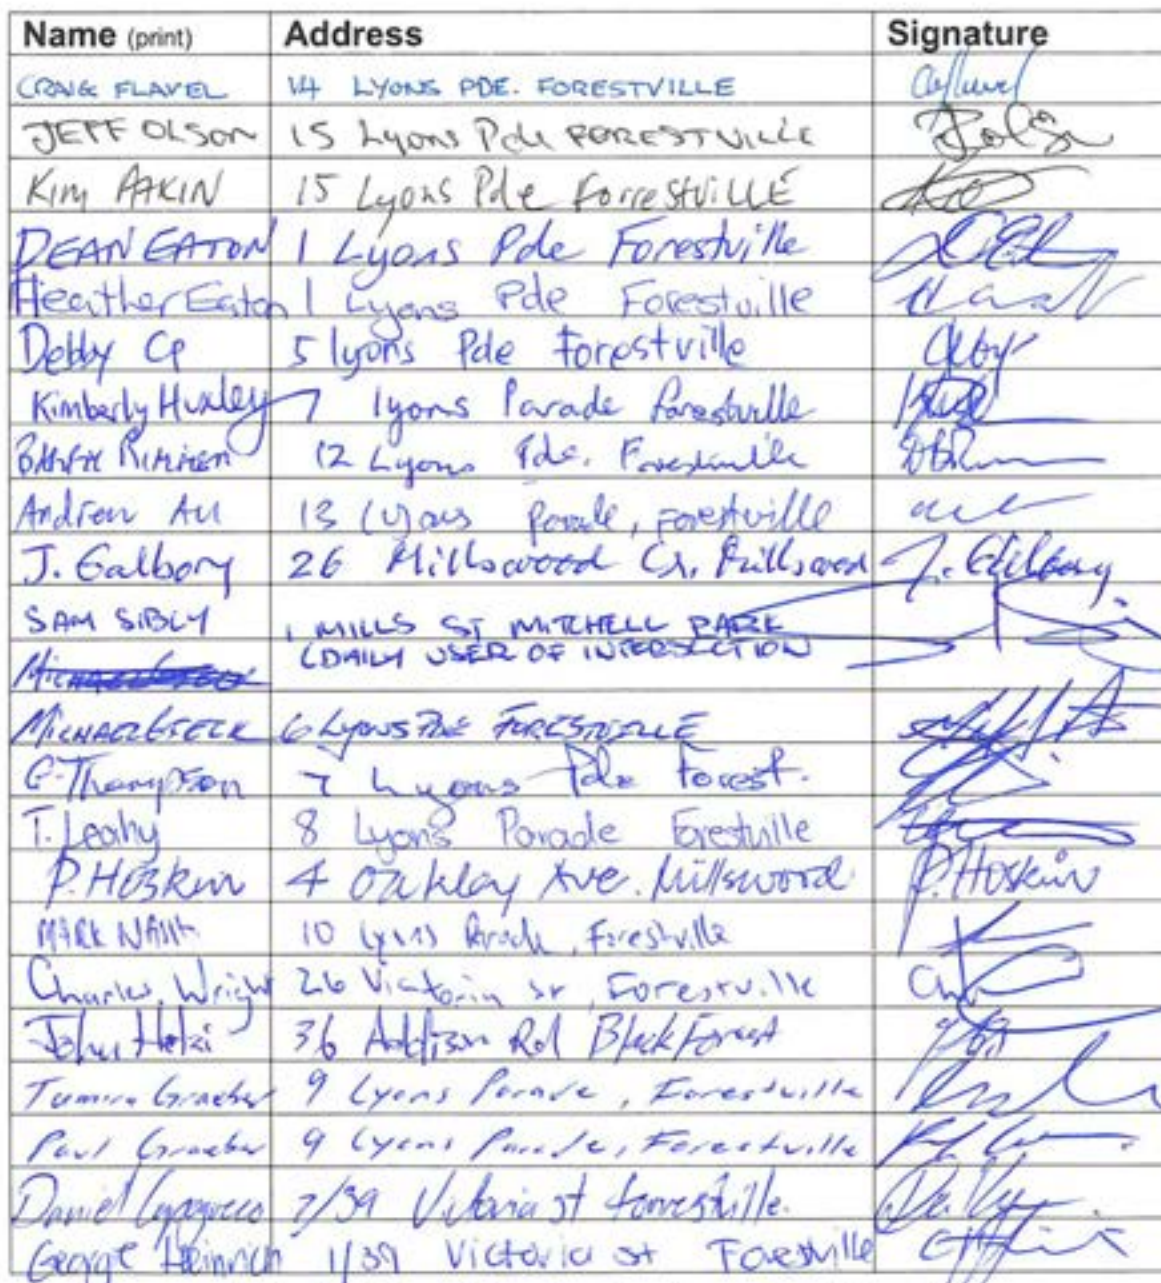 Name (print) Address Signature
CRAIG FLAVEL 14 LYONS PDE. FORESTVILLE
JEFF OLSON 15 Lyons Pde FORESTVILLE
Kim ATKIN 15 Lyons Pde ForrestVILLE
DEAN EATON 1 Lyons Pde Forestville
Heather Eaton 1 Lyons Pde Forestville
Debby 5 lyons Pde Forestville
Kimberly Huxley 7 lyons Parade forestville
12 Lyons Pde, Forestville
Andrew Au 13 Lyons Parade, Forestville
J. Galbory 26 Millswood Cr, Millswood
SAM SIBLY 1 MILLS ST MITCHELL PARK
(DAILY USER OF INTERSECTION
MICHAEL 6 LYONS PDE FORESTVILLE
Thompson 7 Lyons Pde Forest.
T. Leahy 8 Lyons Parade Forestville
P. HOSKIN 4 Oakley Ave. Millswood P. HOSKIN
MARK NASH 10 Lyons Parade, Forestville
Charles Wright 26 Victoria st, Forestville
John 36 Addison Rd Black Forest
Graeber 9 Lyons Parade, Forestville
Paul Graeber 9 Lyons Parade, Forestville
Daniel 2/39 Victoria st forrestville.
George Heinrich 1/39 Victoria st Forestville